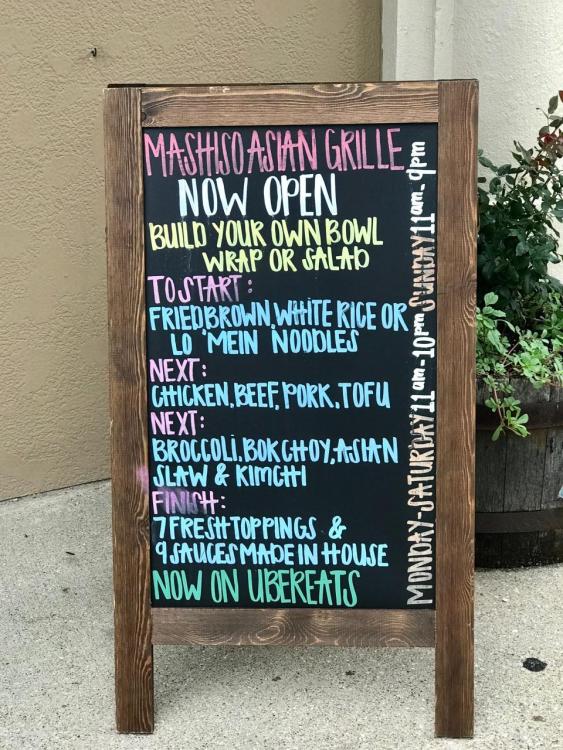 MASHISO ASIAN GRILLE
NOW OPEN
BUILD YOUR OWN BOWL
WRAP OR SALAD
TO START:
FRIED BROWN, WHITE RICE OR
LO 'MEIN NOODLES
NEXT:
CHICKEN, BEEF, PORK, TOFU
NEXT:
BROCCOLI, BOK CHOY, ASIAN
SLAW & KIMCHI
FINISH:
7 FRESH TOPPINGS &
9 SAUCES MADE IN HOUSE
NOW ON UBEREATS
MONDAY-SATURDAY 11am-10pm SUNDAY 11am-9pm